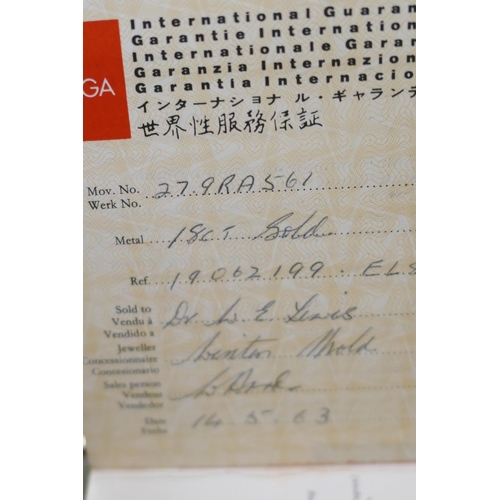 International Guaran
Garantie Internation
Internationale Garan
Garanzia Internazion
Garantia Internacio
インターナショナル・ギャランテ
世界性服務保証
GA
Mov. No. 279RA561
Werk No.
Metal 18ct Gold
Ref. 19062199. EL
Sold to
Vendu à Dr W E Lewis
Vendido a
Jeweller
Concessionnaire Winter Mold
Concesionario
Sales person
Vendeur
Vendedor
Date 14.5.63
Fecha